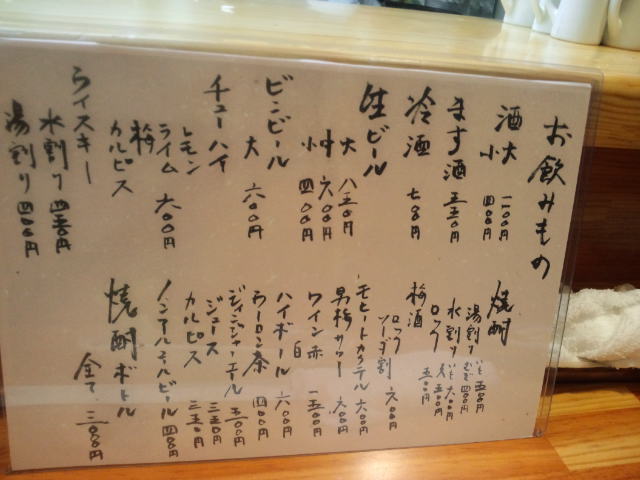 お飲みもの
酒 大 一一〇〇円
小 四〇〇円
ます酒 五五〇円
冷酒 七〇〇円
生ビール 大 八五〇円
中 六〇〇円
小 四〇〇円
ビンビール 大 六〇〇円
チューハイ
レモン
ライム 六〇〇円
梅
カルピス
ウイスキー
水割り 四五〇円
湯割り 四〇〇円
焼酎
湯割り いも 五〇〇円
むぎ 四〇〇円
水割り いも 六〇〇円
ロック 五〇〇円
五〇〇円
梅酒
ロック
ソーダ割 六〇〇円
モヒートカクテル 六〇〇円
男梅サワー 六〇〇円
ワイン 赤 白 一五〇〇円
ハイボール 六〇〇円
ウーロン茶 四〇〇円
ジンジャーエール 五〇〇円
ジュース 三五〇円
カルピス 三五〇円
ノンアルコールビール 四〇〇円
焼酎ボトル
全て 三〇〇〇円